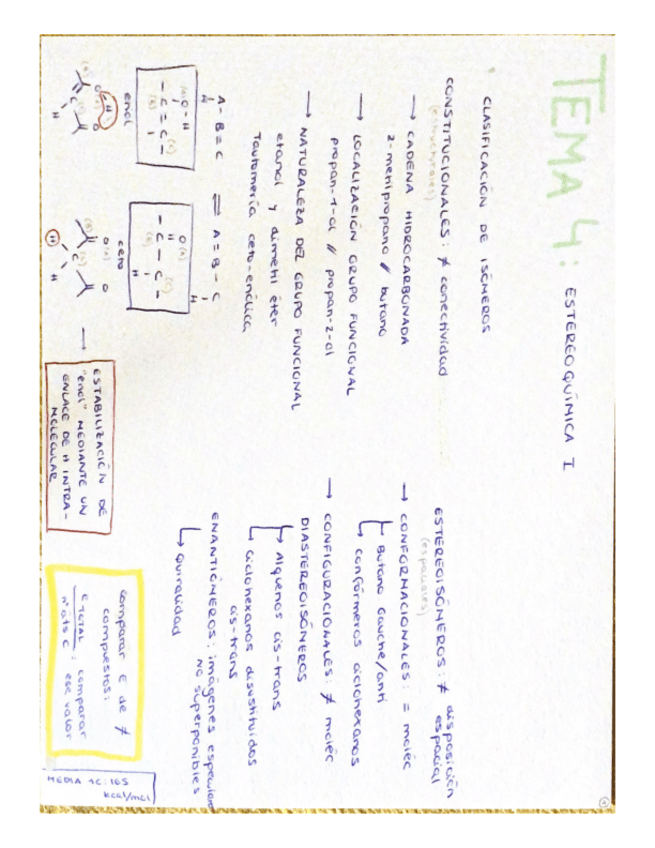 TEMA 4: ESTEREOQUÍMICA I
CLASIFICACIÓN DE ISÓMEROS
CONSTITUCIONALES: ≠ conectividad
(estructurales)
→ CADENA HIDROCARBONADA
2-metilpropano // butano
→ LOCALIZACIÓN GRUPO FUNCIONAL
propan-1-ol // propan-2-ol
→ NATURALEZA DEL GRUPO FUNCIONAL
etanol y dimetil éter
Tautomería ceto-enólica
A-B=C ⇌ A=B-C
H H
(A) O-H
-C=C-
(B) (C)
O (A)
-C-C-
(B) (C)
H
enol
ceto
(B) O (A) H O
(C) C
H
(B) O (A) O
(C) C
H H
→ ESTABILIZACIÓN DE
"enol" MEDIANTE UN
ENLACE DE H INTRA-
MOLECULAR
ESTEREOISÓMEROS: ≠ disposición
espacial
(espaciales)
→ CONFORMACIONALES: = moléc
Butano Gauche/anti
confórmeros ciclohexanos
→ CONFIGURACIONALES: ≠ moléc
DIASTEREOISÓMEROS
Alquenos cis-trans
ciclohexanos disustituidos
cis-trans
ENANTIÓMEROS: imágenes especulares
no superponibles
Quiralidad
comparar E de ≠
compuestos:
E TOTAL
nº ats C
; comparar
ese valor
MEDIA 1C: 165
kcal/mol